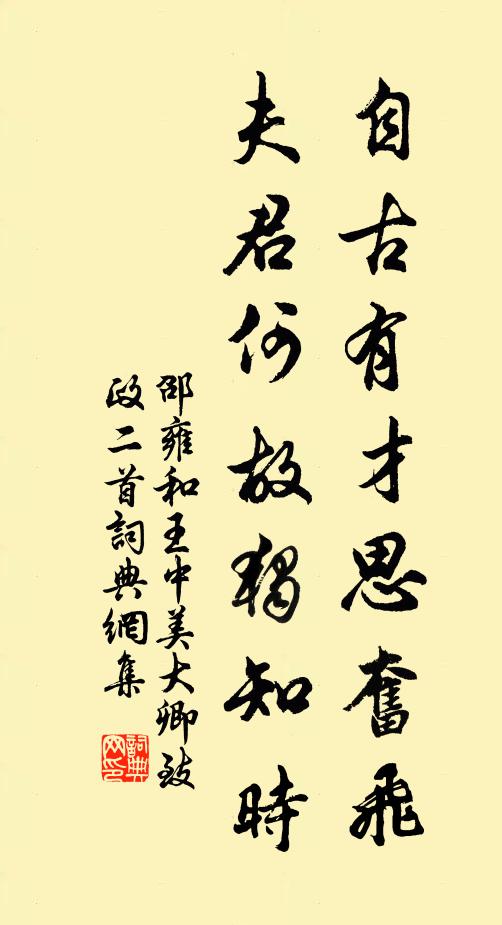 自古有才思奮飛
夫君何故獨知時
邵雍和王中美大卿致
政二首詞典網集
詞典
网印